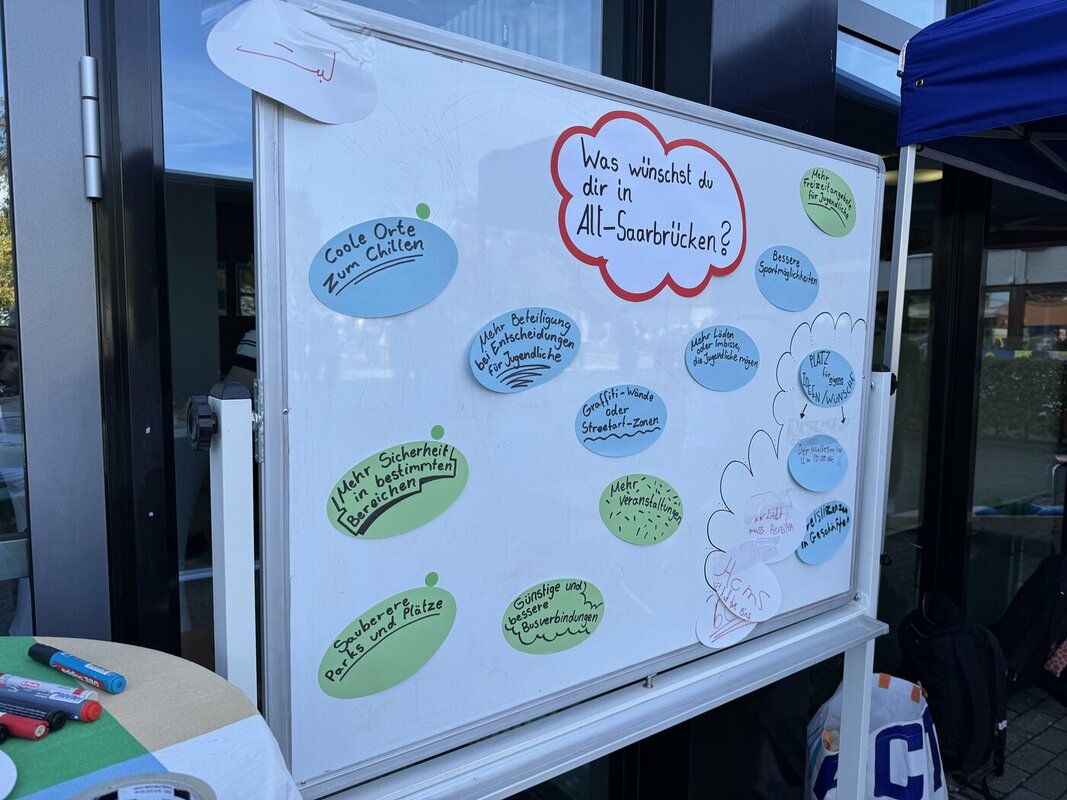 Was wünschst du
dir in
Alt-Saarbrücken?
Coole Orte
Zum Chillen
Mehr Beteiligung
bei Entscheidungen
für Jugendliche
Mehr
Freizeitangebote
für Jugendliche
Bessere
Sportmöglichkeiten
Mehr Läden
oder Imbisse,
die Jugendliche mögen
PLATZ
für eigene
IDEEN/WÜNSCHE
Graffiti-Wände
oder
Streetart-Zonen
Mehr Sicherheit
in bestimmten
Bereichen
Mehr
Veranstaltungen
in Geschäften
muss
Sauberere
Parks und Plätze
Günstige und
bessere
Busverbindungen